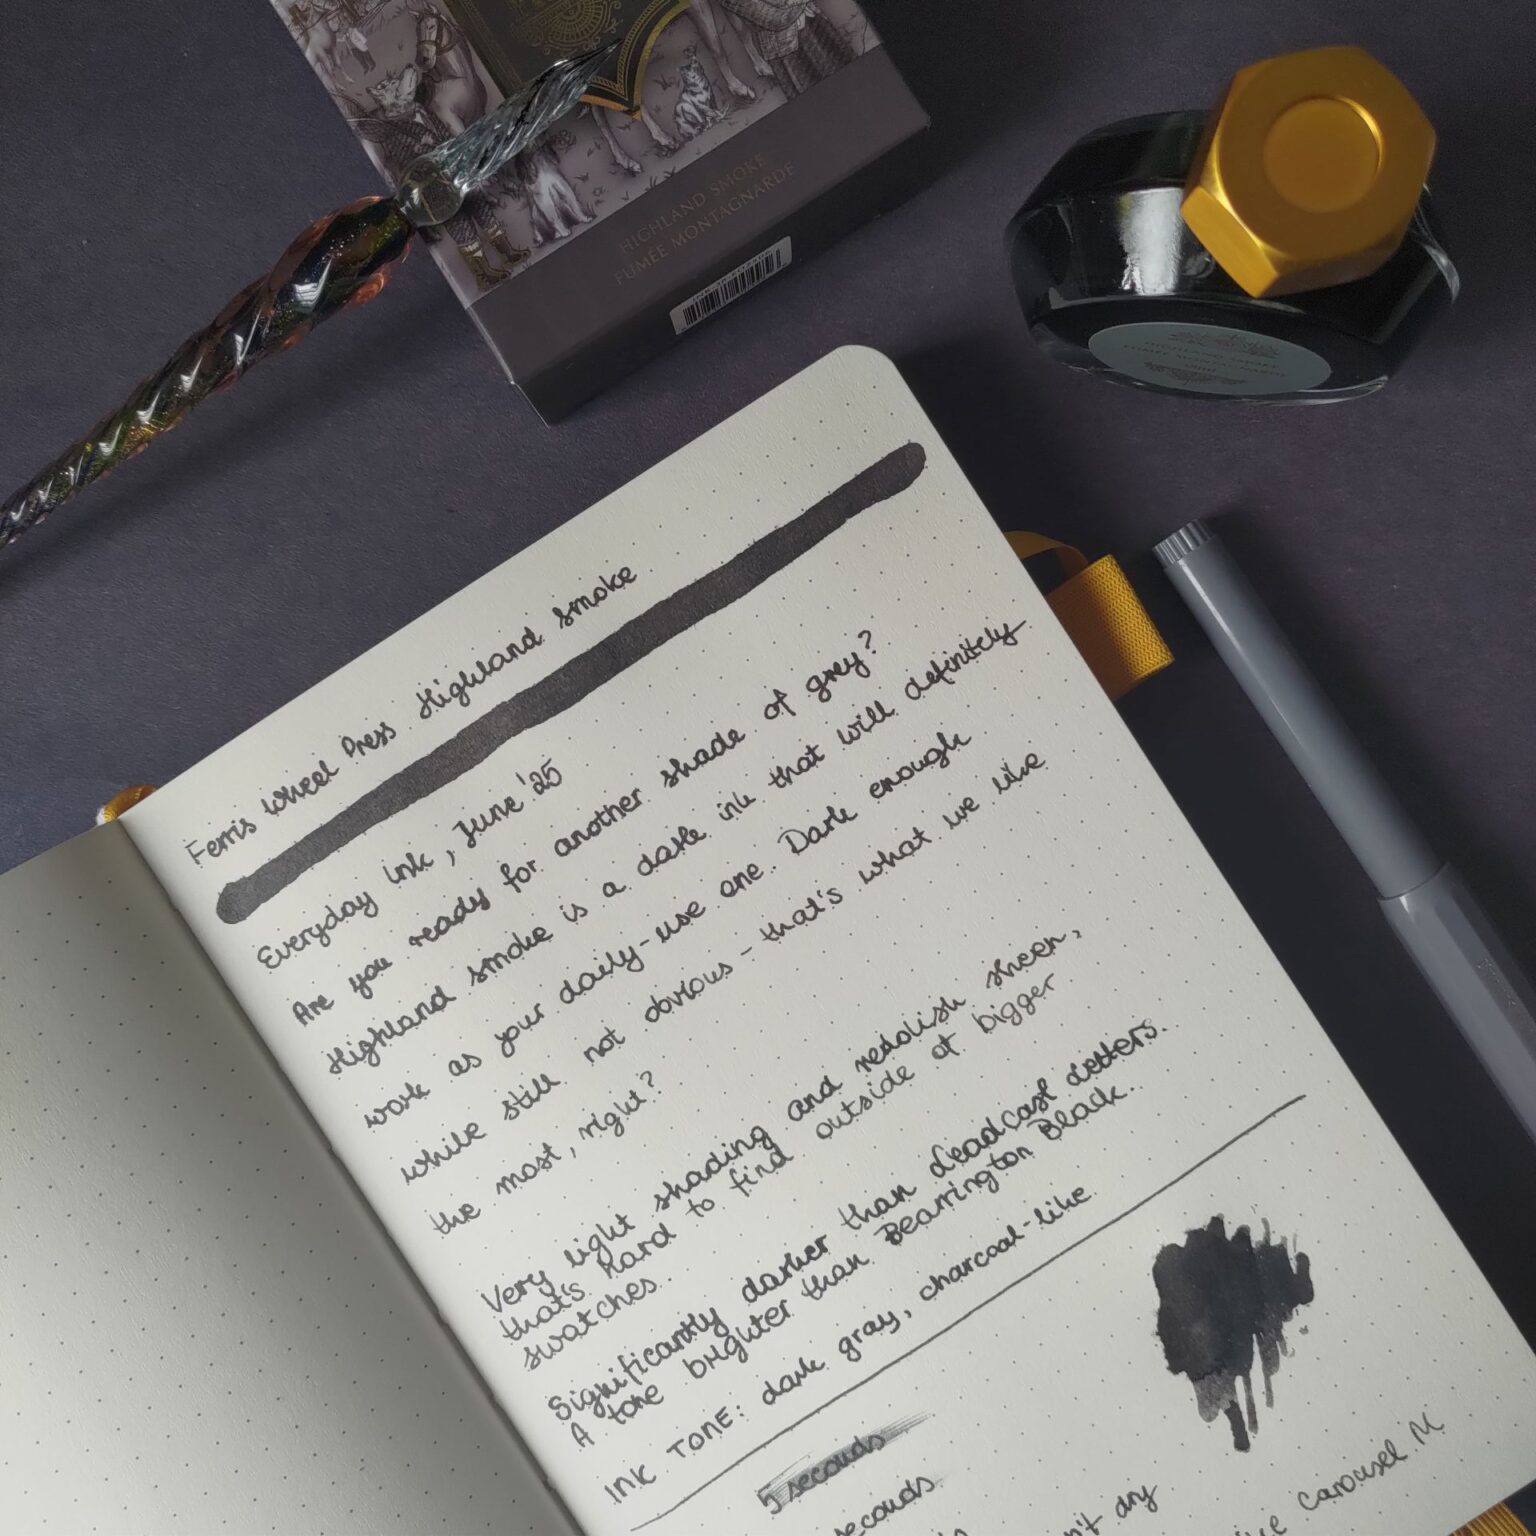 HIGHLAND SMOKE
FUMÉE MONTAGNARDE
HIGHLAND SMOKE
FUMÉE MONTAGNARDE
Ferris Wheel Press Highland Smoke
Everyday ink, June '25
Are you ready for another shade of grey?
Highland Smoke is a dark ink that will definitely
work as your daily-use one. Dark enough
while still not obvious - that's what we like
the most, right?
Very light shading and reddish sheen,
that's hard to find outside of bigger
swatches.
Significantly darker than Dead Cast Letters.
A tone brighter than Bearrington Black.
INK TONE: dark gray, charcoal-like
5 seconds
seconds
dry
Carousel M